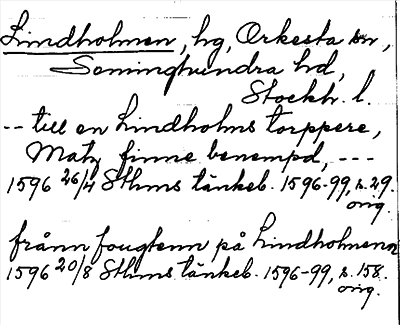 Lindholmen, hg, Orkesta sn,
Seminghundra hd,
Stockh. l.
-- till en Lindholms torppere,
Matz finne benempd, ---
1596 26/4 Sthms tänkeb. 1596-99, s. 29.
orig.
frånn fougtenn på Lindholmenn
1596 20/8 Sthms tänkeb. 1596-99, s. 158.
orig.